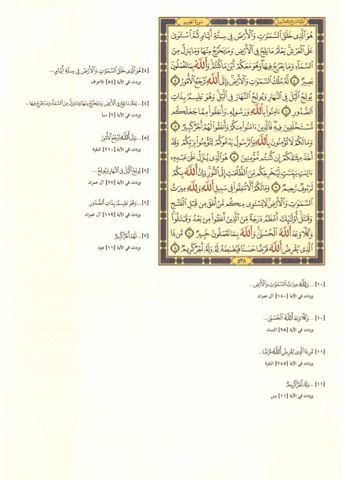 هُوَ ٱلَّذِى خَلَقَ ٱلسَّمَٰوَٰتِ وَٱلْأَرْضَ فِى سِتَّةِ أَيَّامٍ ثُمَّ ٱسْتَوَىٰ
عَلَى ٱلْعَرْشِ يَعْلَمُ مَا يَلِجُ فِى ٱلْأَرْضِ وَمَا يَخْرُجُ مِنْهَا وَمَا يَنزِلُ مِنَ
ٱلسَّمَآءِ وَمَا يَعْرُجُ فِيهَا وَهُوَ مَعَكُمْ أَيْنَ مَا كُنتُمْ وَٱللَّهُ بِمَا تَعْمَلُونَ
بَصِيرٌ ۝ لَّهُۥ مُلْكُ ٱلسَّمَٰوَٰتِ وَٱلْأَرْضِ وَإِلَى ٱللَّهِ تُرْجَعُ ٱلْأُمُورُ ۝
يُولِجُ ٱلَّيْلَ فِى ٱلنَّهَارِ وَيُولِجُ ٱلنَّهَارَ فِى ٱلَّيْلِ وَهُوَ عَلِيمٌۢ بِذَاتِ
ٱلصُّدُورِ ۝ ءَامِنُوا۟ بِٱللَّهِ وَرَسُولِهِۦ وَأَنفِقُوا۟ مِمَّا جَعَلَكُم
مُّسْتَخْلَفِينَ فِيهِ فَٱلَّذِينَ ءَامَنُوا۟ مِنكُمْ وَأَنفَقُوا۟ لَهُمْ أَجْرٌ كَبِيرٌ ۝
وَمَا لَكُمْ لَا تُؤْمِنُونَ بِٱللَّهِ وَٱلرَّسُولُ يَدْعُوكُمْ لِتُؤْمِنُوا۟ بِرَبِّكُمْ وَقَدْ
أَخَذَ مِيثَٰقَكُمْ إِن كُنتُم مُّؤْمِنِينَ ۝ هُوَ ٱلَّذِى يُنَزِّلُ عَلَىٰ عَبْدِهِۦٓ
ءَايَٰتٍۭ بَيِّنَٰتٍ لِّيُخْرِجَكُم مِّنَ ٱلظُّلُمَٰتِ إِلَى ٱلنُّورِ وَإِنَّ ٱللَّهَ بِكُمْ
لَرَءُوفٌ رَّحِيمٌ ۝ وَمَا لَكُمْ أَلَّا تُنفِقُوا۟ فِى سَبِيلِ ٱللَّهِ وَلِلَّهِ مِيرَٰثُ
ٱلسَّمَٰوَٰتِ وَٱلْأَرْضِ لَا يَسْتَوِى مِنكُم مَّنْ أَنفَقَ مِن قَبْلِ ٱلْفَتْحِ
وَقَٰتَلَ أُو۟لَٰٓئِكَ أَعْظَمُ دَرَجَةً مِّنَ ٱلَّذِينَ أَنفَقُوا۟ مِنۢ بَعْدُ وَقَٰتَلُوا۟
وَكُلًّا وَعَدَ ٱللَّهُ ٱلْحُسْنَىٰ وَٱللَّهُ بِمَا تَعْمَلُونَ خَبِيرٌ ۝ مَّن ذَا
ٱلَّذِى يُقْرِضُ ٱللَّهَ قَرْضًا حَسَنًا فَيُضَٰعِفَهُۥ لَهُۥ وَلَهُۥٓ أَجْرٌ كَرِيمٌ ۝
٥٣٨
[٤] هُوَ ٱلَّذِى خَلَقَ ٱلسَّمَٰوَٰتِ وَٱلْأَرْضَ فِى سِتَّةِ أَيَّامٍ ..
وردت في الآية [٥٤] الأعراف
[٤] .. يَعْلَمُ مَا يَلِجُ فِى ٱلْأَرْضِ وَمَا يَخْرُجُ مِنْهَا وَمَا يَنزِلُ مِنَ ٱلسَّمَآءِ وَمَا يَعْرُجُ فِيهَا ..
وردت في الآية [٢] سبأ
[٥] .. وَإِلَى ٱللَّهِ تُرْجَعُ ٱلْأُمُورُ
وردت في الآية [٢١٠] البقرة
[٦] يُولِجُ ٱلَّيْلَ فِى ٱلنَّهَارِ وَيُولِجُ ..
وردت في الآية [٢٧] آل عمران
[٦] .. وَهُوَ عَلِيمٌۢ بِذَاتِ ٱلصُّدُورِ
وردت في الآية [١١٩] آل عمران
[٧] .. لَهُمْ أَجْرٌ كَبِيرٌ
وردت في الآية [١١] هود
[١٠] .. وَلِلَّهِ مِيرَٰثُ ٱلسَّمَٰوَٰتِ وَٱلْأَرْضِ ..
وردت في الآية [١٨٠] آل عمران
[١٠] .. وَكُلًّا وَعَدَ ٱللَّهُ ٱلْحُسْنَىٰ ..
وردت في الآية [٩٥] النساء
[١١] مَّن ذَا ٱلَّذِى يُقْرِضُ ٱللَّهَ قَرْضًا ..
وردت في الآية [٢٤٥] البقرة
[١١] .. وَلَهُۥٓ أَجْرٌ كَرِيمٌ
وردت في الآية [١١] يس